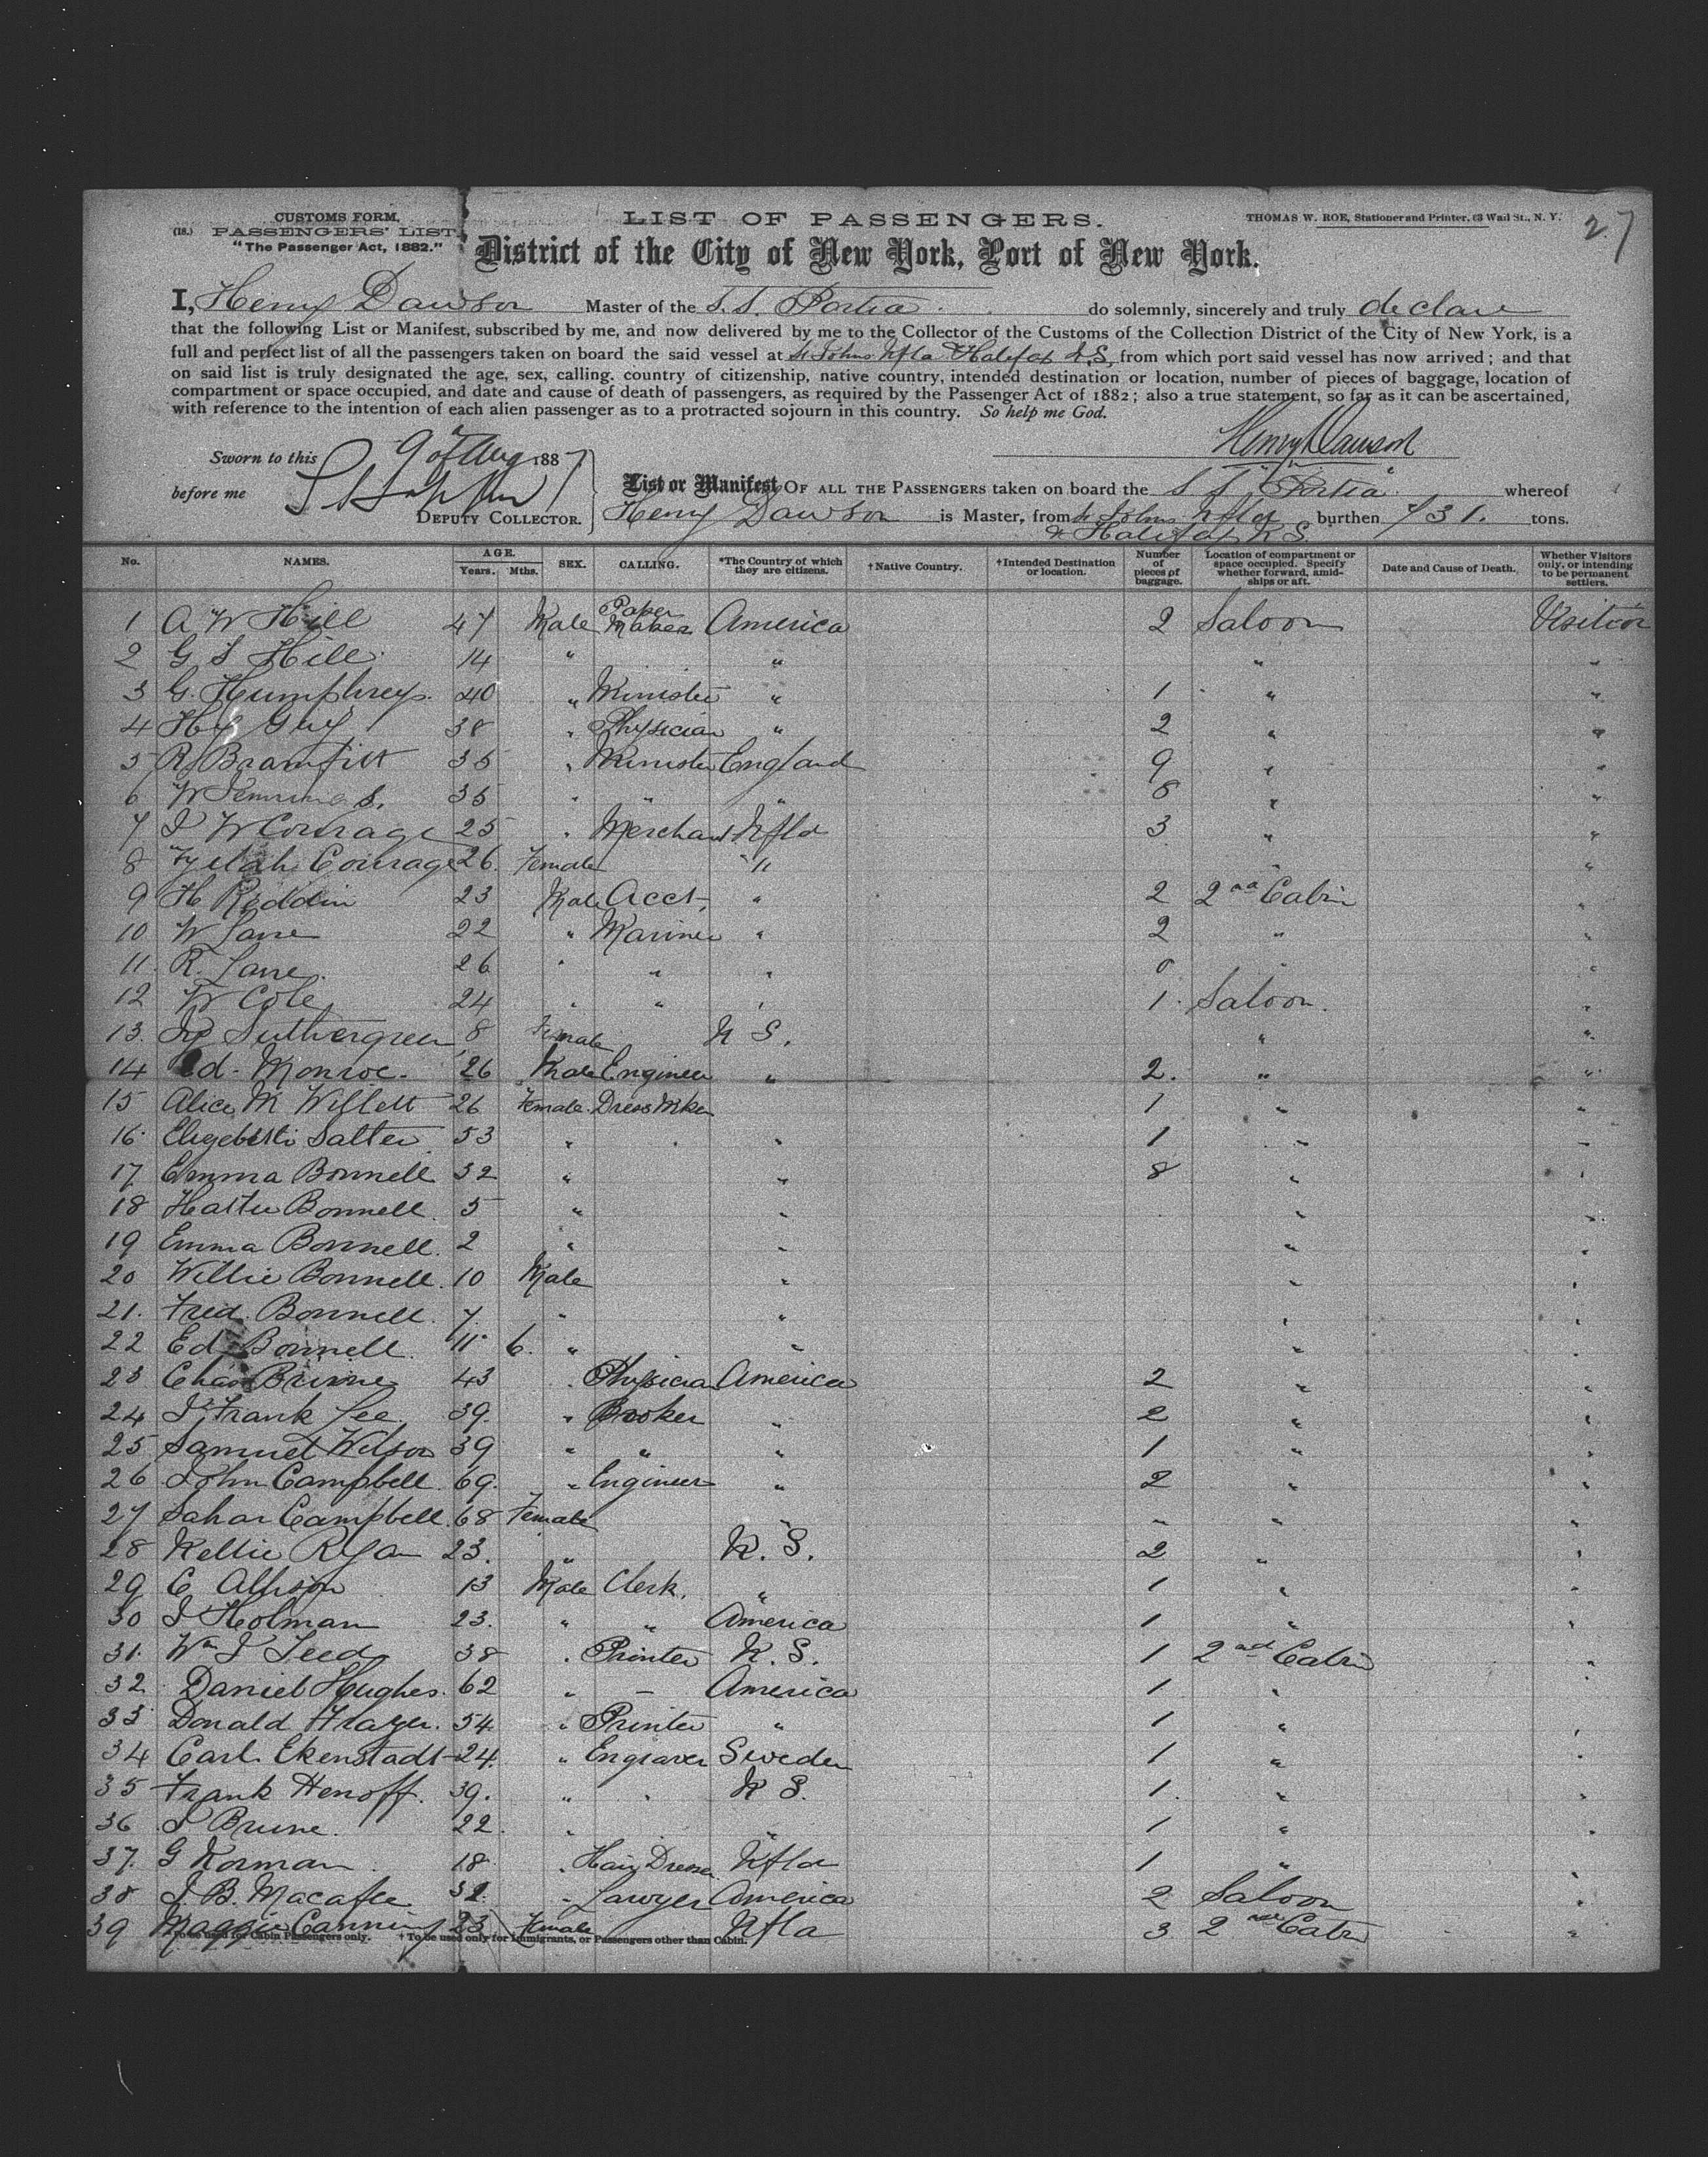 27
CUSTOMS FORM.
(18.) PASSENGERS' LIST.
"The Passenger Act, 1882."
LIST OF PASSENGERS.
THOMAS W. ROE, Stationer and Printer, 63 Wall St., N. Y.
District of the City of New York, Port of New York.
I, Henry Dawson Master of the S.S. Portia do solemnly, sincerely and truly declare
that the following List or Manifest, subscribed by me, and now delivered by me to the Collector of the Customs of the Collection District of the City of New York, is a
full and perfect list of all the passengers taken on board the said vessel at St Johns Nfld & Halifax N.S. from which port said vessel has now arrived; and that
on said list is truly designated the age, sex, calling, country of citizenship, native country, intended destination or location, number of pieces of baggage, location of
compartment or space occupied, and date and cause of death of passengers, as required by the Passenger Act of 1882; also a true statement, so far as it can be ascertained,
with reference to the intention of each alien passenger as to a protracted sojourn in this country. So help me God.
Henry Dawson
Sworn to this 9 of Aug 1887
before me
DEPUTY COLLECTOR.
List or Manifest OF ALL THE PASSENGERS taken on board the S S Portia whereof
Henry Dawson is Master, from St Johns Nfld burthen 731. tons.
& Halifax N S.
No. NAMES. AGE. Years. Mths. SEX. CALLING. *The Country of which they are citizens. †Native Country. †Intended Destination or location. Number of pieces of baggage. Location of compartment or space occupied. Specify whether forward, amidships or aft. Date and Cause of Death. Whether Visitors only, or intending to be permanent settlers.
1 A W Hill 47 Male Paper Maker America 2 Saloon Visitor
2 G S Hill 14 " " " "
3 G. Humphreys. 40 " Minister " 1 " "
4 Hy Guy 38 " Physician " 2 " "
5 R Bramfitt 35 " Minister England 9 " "
6 W Jennings. 35 " " " 8 " "
7 J W Courage 25 " Merchant Nfld 3 " "
8 Courage 26. Female " " "
9 H Reddin 23 Male Acct. " 2 2nd Cabin "
10 W Lane 22 " Mariner " 2 " "
11. R. Lane. 26 " " " " "
12 W Cole 24 " " " 1. Saloon. "
13. Suthergreen 8 Female N S. " "
14 Ed. Monroe. 26 Male Engineer " 2. " "
15 Alice M Willett 26 Female Dress Mker 1 " "
16. Salter 53 " " 1 " "
17 Emma Bonnell 32 " " 8 " "
18 Hattie Bonnell. 5 " " " "
19 Emma Bonnell. 2 " " " "
20 Willie Bonnell. 10 Male " " "
21. Fred. Bonnell. 7. " " " "
22 Ed Bonnell. 11 6. " " " "
23 Chas Brine 43 " Physician America 2 " "
24 J Frank Lee. 39. " Broker " 2 " "
25 Samuel Wilson 39 " " " 1 " "
26 John Campbell. 69. " Engineer " 2 " "
27 Sahar Campbell. 68 Female " " " "
28 Nellie Ryan 23. " N. S. 2 " "
29 C Allison 13 Male Clerk. " 1 " "
30 J Holman 23. " " America 1 " "
31. Wm J Teed 38 " Printer N. S. 1 2nd Cabin "
32. Daniel Hughes. 62 " — America 1 " "
33 Donald Frazer. 54 " Printer " 1 " "
34 Carl Ekenstadt 24. " Engraver Sweden 1 " "
35 Frank Henoff. 39. " " N S. 1. " "
36 J Brune. 22. " " 1 " "
37. G Norman 18. " Hair Dresser Nfld 1 " "
38 J. B. Macafee 32. " Lawyer America 2 Saloon "
39 Maggie Canning 23 Female Nfld 3 2nd Cabin "
* To be used for Cabin Passengers only. † To be used only for Immigrants, or Passengers other than Cabin.